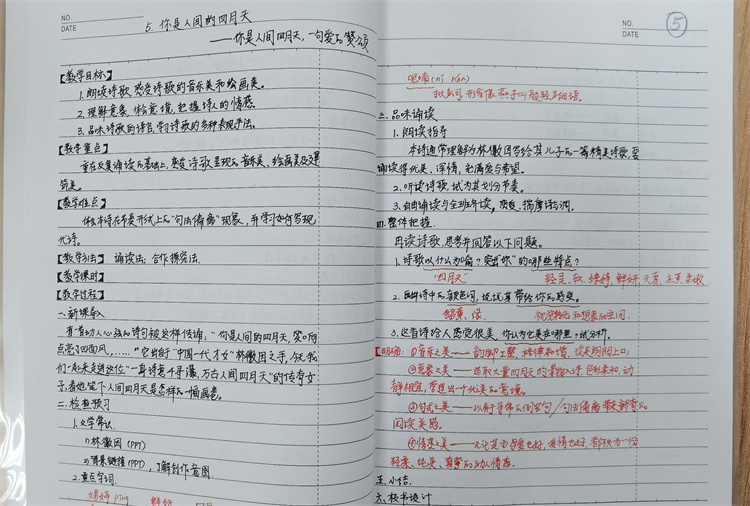 NO.
DATE
5. 你是人间的四月天
——你是人间四月天，一句爱的赞颂
【教学目标】
1. 朗读诗歌，感受诗歌的音乐美和绘画美。
2. 理解意象，体会意境，把握诗人的情感。
3. 品味诗歌的语言，学习诗歌的多种表现手法。
【教学重点】
重在反复诵读的基础上，感受诗歌呈现的音乐美、绘画美及建
筑美。
【教学难点】
体会本诗在节奏形式上的“句法偏离”现象，并学习如何写现
代诗。
【教学方法】 诵读法；合作探究法。
【教学课时】
【教学过程】
一. 新课导入
有首动人心弦的诗句被这样传诵：“你是人间的四月天，笑响
点亮了四面风，……”它出自“中国一代才女”林徽因之手，今天我
们一起来走近这位“一身诗意千寻瀑，万古人间四月天”的传奇女
子，看她笔下人间四月天是怎样的一幅画卷。
二. 检查预习
1. 文学常识
(1) 林徽因 (PPT)
(2) 背景链接 (PPT)，了解创作意图
2. 重点字词
娉婷 pīng 鲜妍
NO.
DATE
5
呢喃 (ní nán)
拟声词，形容像燕子叫般轻声细语。
三. 品味诵读
1. 朗读指导
本诗通常理解为林徽因写给其儿子的一篇精美诗歌，要
诵读得优美、深情，充满爱与希望。
2. 听读诗歌，试为其划分节奏。
3. 自由诵读与全班年读，揣摩语调。
四. 整体把握
再读诗歌，思考并回答以下问题。
1. 诗歌以什么为喻？突出“你”的哪些特点？
“四月天” 轻灵、软、娉婷、鲜妍、天真、庄严、柔嫩
2. 画诗中的颜色词，说说其带给你的感受。
鹅黄、绿 视觉转化和想象的空间
3. 这首诗给人感觉很美，你认为它美在哪里？试分析。
【明确】：①音乐之美——韵脚工整，旋律和谐，读来朗朗上口；
②意象之美——选取大量四月天的景物入诗，色彩柔和，动
静相宜，营造出一个优美的意境。
③句式之美——以别于寻常的倒装句／句法偏离带来新奇的
阅读美感。
④情感之美——无论是为母爱也好，爱情也好，都称为一份
轻柔、纯美、真挚的动人情感。
五. 小结
六. 板书设计